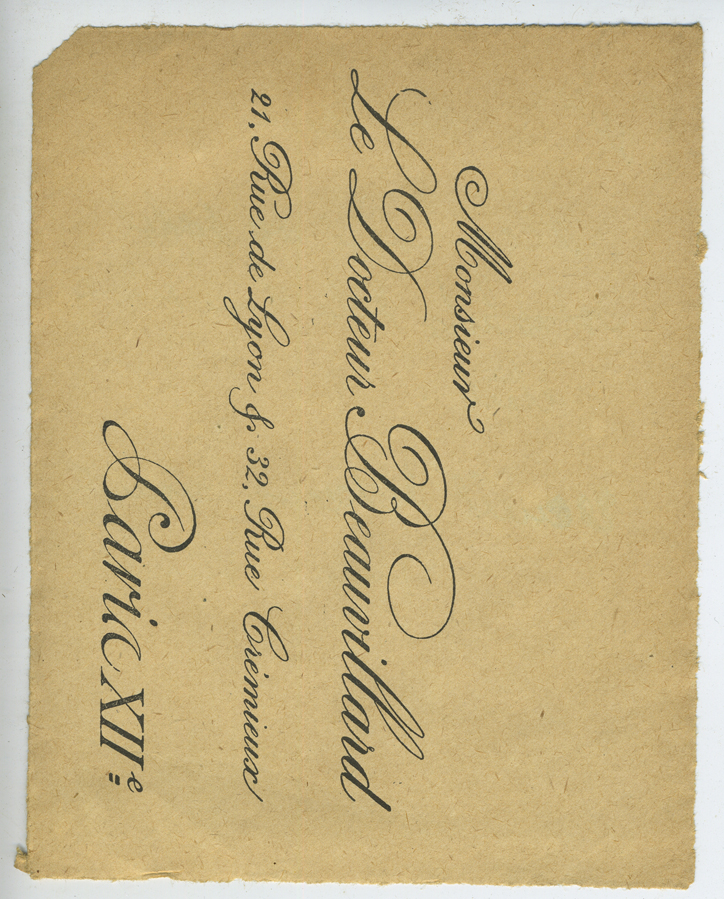 Monsieur
Le Docteur Beauvillard
21, Rue de Lyon & 32, Rue Crémieux
Paris XIIe